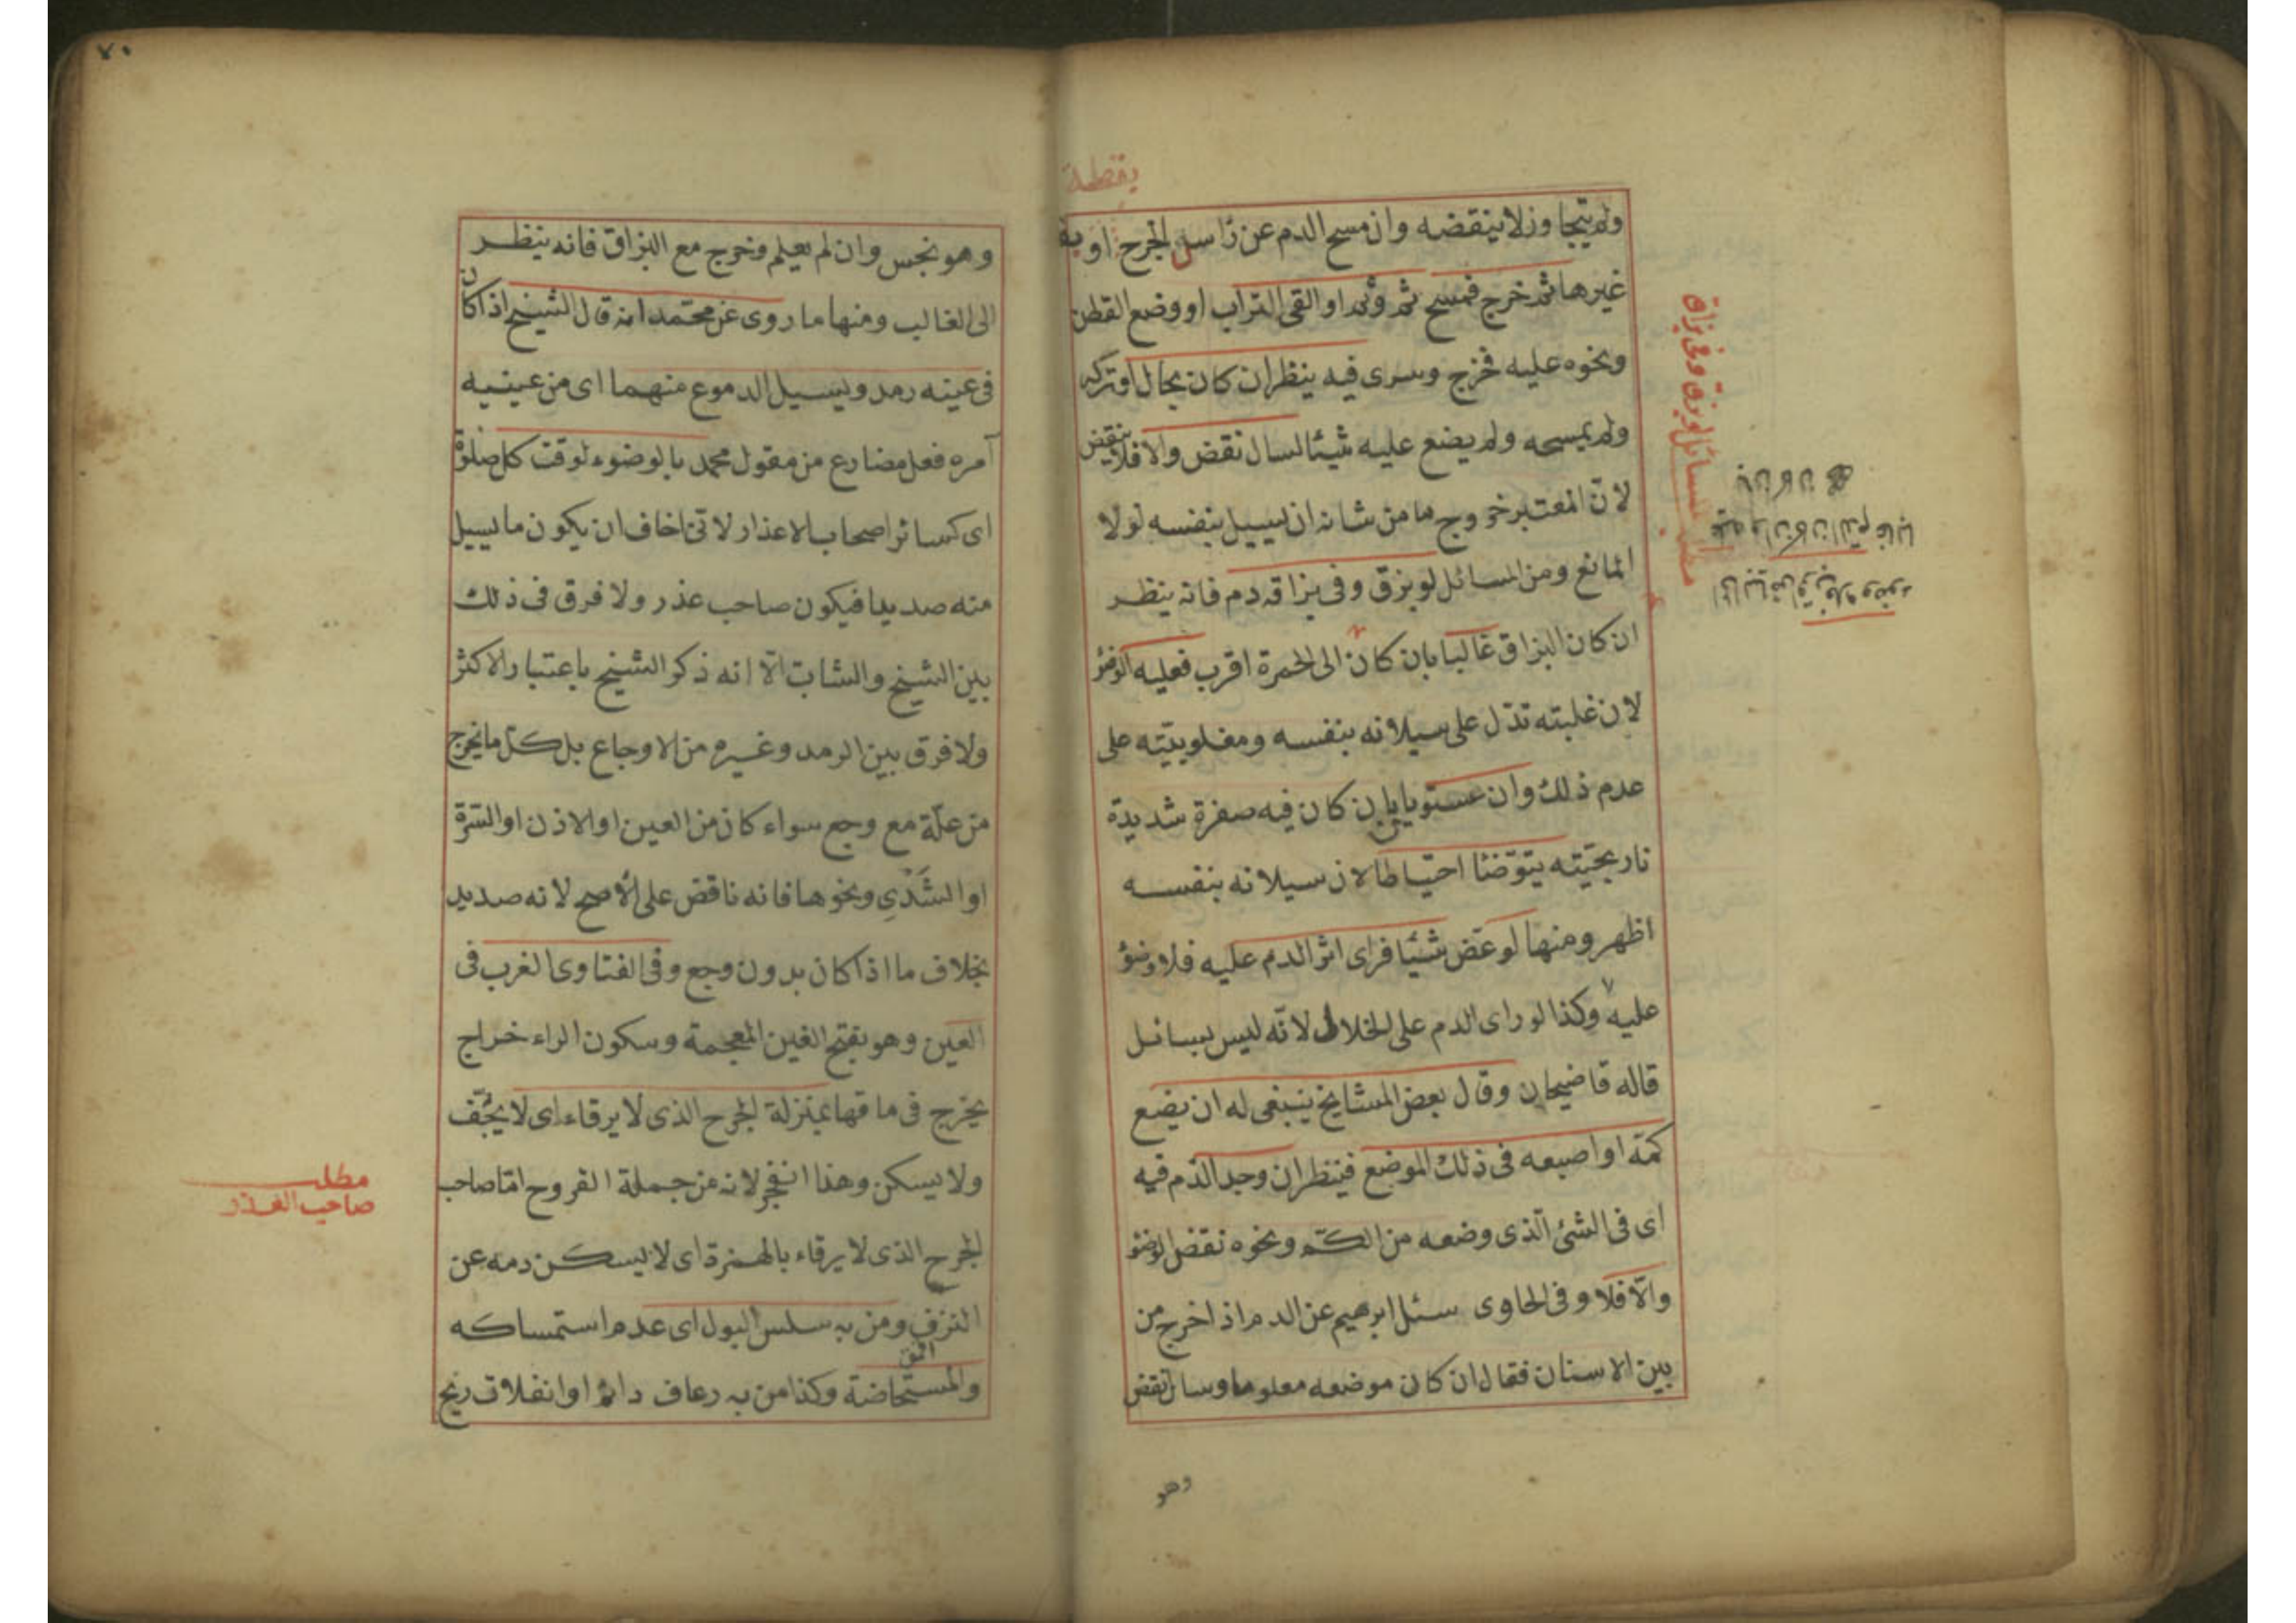 بقطنة
ولم يتجاوز لا ينقضه وان مسح الدم عن رأس الجرح او
غيرها ثم خرج فمسح ثم وثم او القى التراب او وضع القطن
ونحوه عليه فخرج وسرى فيه ينظر ان كان بحال لو تركه
ولم يمسحه ولم يضع عليه شيئا لسال نقض والا فلا ينقض
لانّ المعتبر خروج ما من شانه ان يسيل بنفسه لولا
المانع ومن المسائل لو بزق وفى بزاقه دم فانه ينظر
ان كان البزاق غالبا بان كان الى الحمرة اقرب فعليه الوضؤ
لان غلبته تدل على سيلانه بنفسه ومغلوبيّته على
عدم ذلك وان مستويا بان كان فيه صفرة شديدة
نارنجيّته يتوّضئا احتياطا لان سيلانه بنفسه
اظهر ومنها لو عض شيئا فراى اثر الدم عليه فلا وضؤ
عليه وكذا لو راى الدم على الخلال لانّه ليس بسائل
قاله قاضيخان وقال بعض المشايخ ينبغى له ان يضع
كمّه او اصبعه فى ذلك الموضع فينظر ان وجد الدّم فيه
اى فى الشئ الّذى وضعه من الكمّ ونحوه نقض الوضؤ
والّا فلا وفى الحاوى سئل ابرهيم عن الدم اذا خرج من
بين الاسنان فقال ان كان موضعه معلوما وسال نقض
وهو
مطلب المسائل لو بزق وفى بزاق
٧٠
وهو نجس وان لم يعلم وخرج مع البزاق فانه ينظر
الى الغالب ومنها ما روى عن محتمد انه قال الشيخ اذا كان
فى عينه رمد ويسيل الدموع منهما اى من عينيه
آمره فعل مضارع من مقول محمد بالوضوء لوقت كل صلوة
اى كسائر اصحاب الاعذار لانى اخاف ان يكون ما يسيل
منه صديدا فيكون صاحب عذر ولا فرق فى ذلك
بين الشيخ والشاب الّا انه ذكر الشيخ باعتبار الاكثر
ولا فرق بين الرمد وغيره من الاوجاع بل كل ما يخرج
من علّة مع وجع سواء كان من العين او الاذن او السّرّة
او الثَدْىِ ونحوها فانه ناقض على الاصح لانه صديد
بخلاف ما اذا كان بدون وجع وفى الفتاوى الغرب فى
العين وهو بفتح الغين المعجمة وسكون الراء خراج
يخرج فى ماقها بمنزلة الجرح الذى لا يرقاء اى لا يجّف
ولا يسكن وهذا انفجر لانه من جملة القروح امّا صاحب
الجرح الذى لا يرقاء بالهمزة اى لا يسكن دمه عن
النزف ومن به سلس البول اى عدم استمساكه
والمستحاضة وكذا من به رعاف دائم او انفلات ريح
مطلب
صاحب العذر